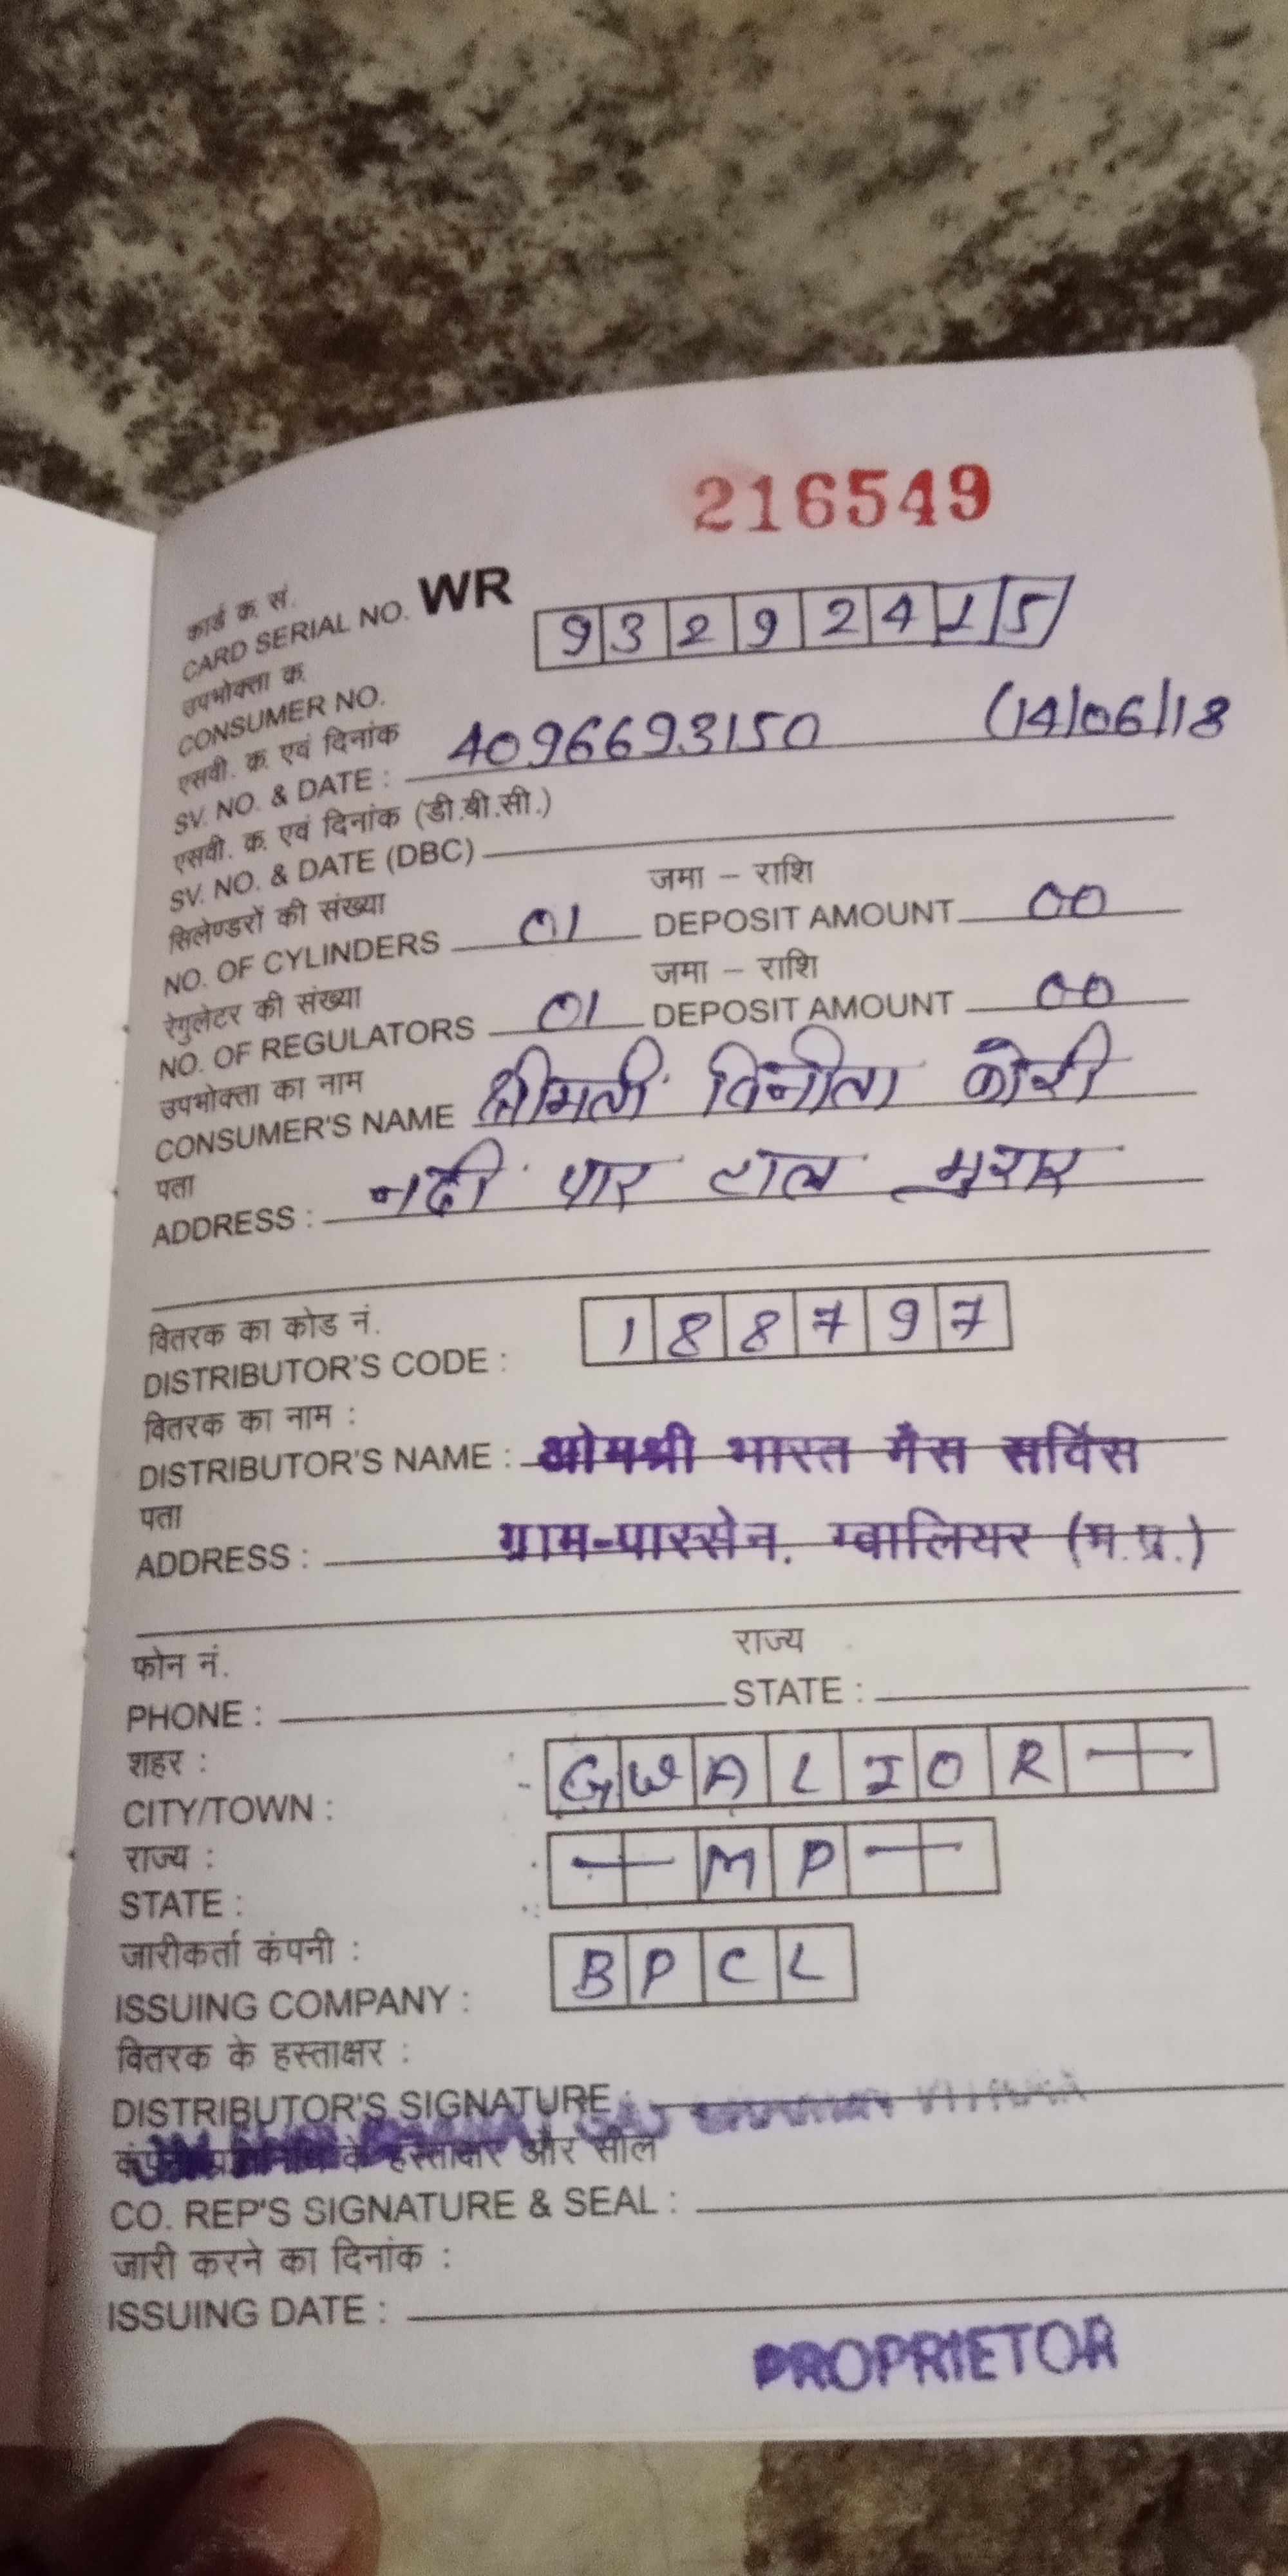 216549
कार्ड क्र. सं.
CARD SERIAL NO. WR
उपभोक्ता क्र.
CONSUMER NO. 93292415
एसवी. क्र. एवं दिनांक
SV. NO. & DATE : 4096693150 (14/06/18
एसवी. क्र. एवं दिनांक (डी.बी.सी.)
SV. NO. & DATE (DBC)
सिलेण्डरों की संख्या जमा – राशि
NO. OF CYLINDERS 01 DEPOSIT AMOUNT 00
रेगुलेटर की संख्या जमा – राशि
NO. OF REGULATORS 01 DEPOSIT AMOUNT 00
उपभोक्ता का नाम
CONSUMER'S NAME श्रीमती विनीता कोरी
पता
ADDRESS : नदी पार टाल मुरार
वितरक का कोड नं.
DISTRIBUTOR'S CODE : 188797
वितरक का नाम :
DISTRIBUTOR'S NAME : ओमश्री भारत गैस सर्विस
पता
ADDRESS : ग्राम-पारसेन. ग्वालियर (म.प्र.)
फोन नं. राज्य
PHONE : STATE :
शहर :
CITY/TOWN : GWALIOR
राज्य :
STATE : MP
जारीकर्ता कंपनी :
ISSUING COMPANY : BPCL
वितरक के हस्ताक्षर :
DISTRIBUTOR'S SIGNATURE
के हस्ताक्षर और सील
CO. REP'S SIGNATURE & SEAL :
जारी करने का दिनांक :
ISSUING DATE :
PROPRIETOR